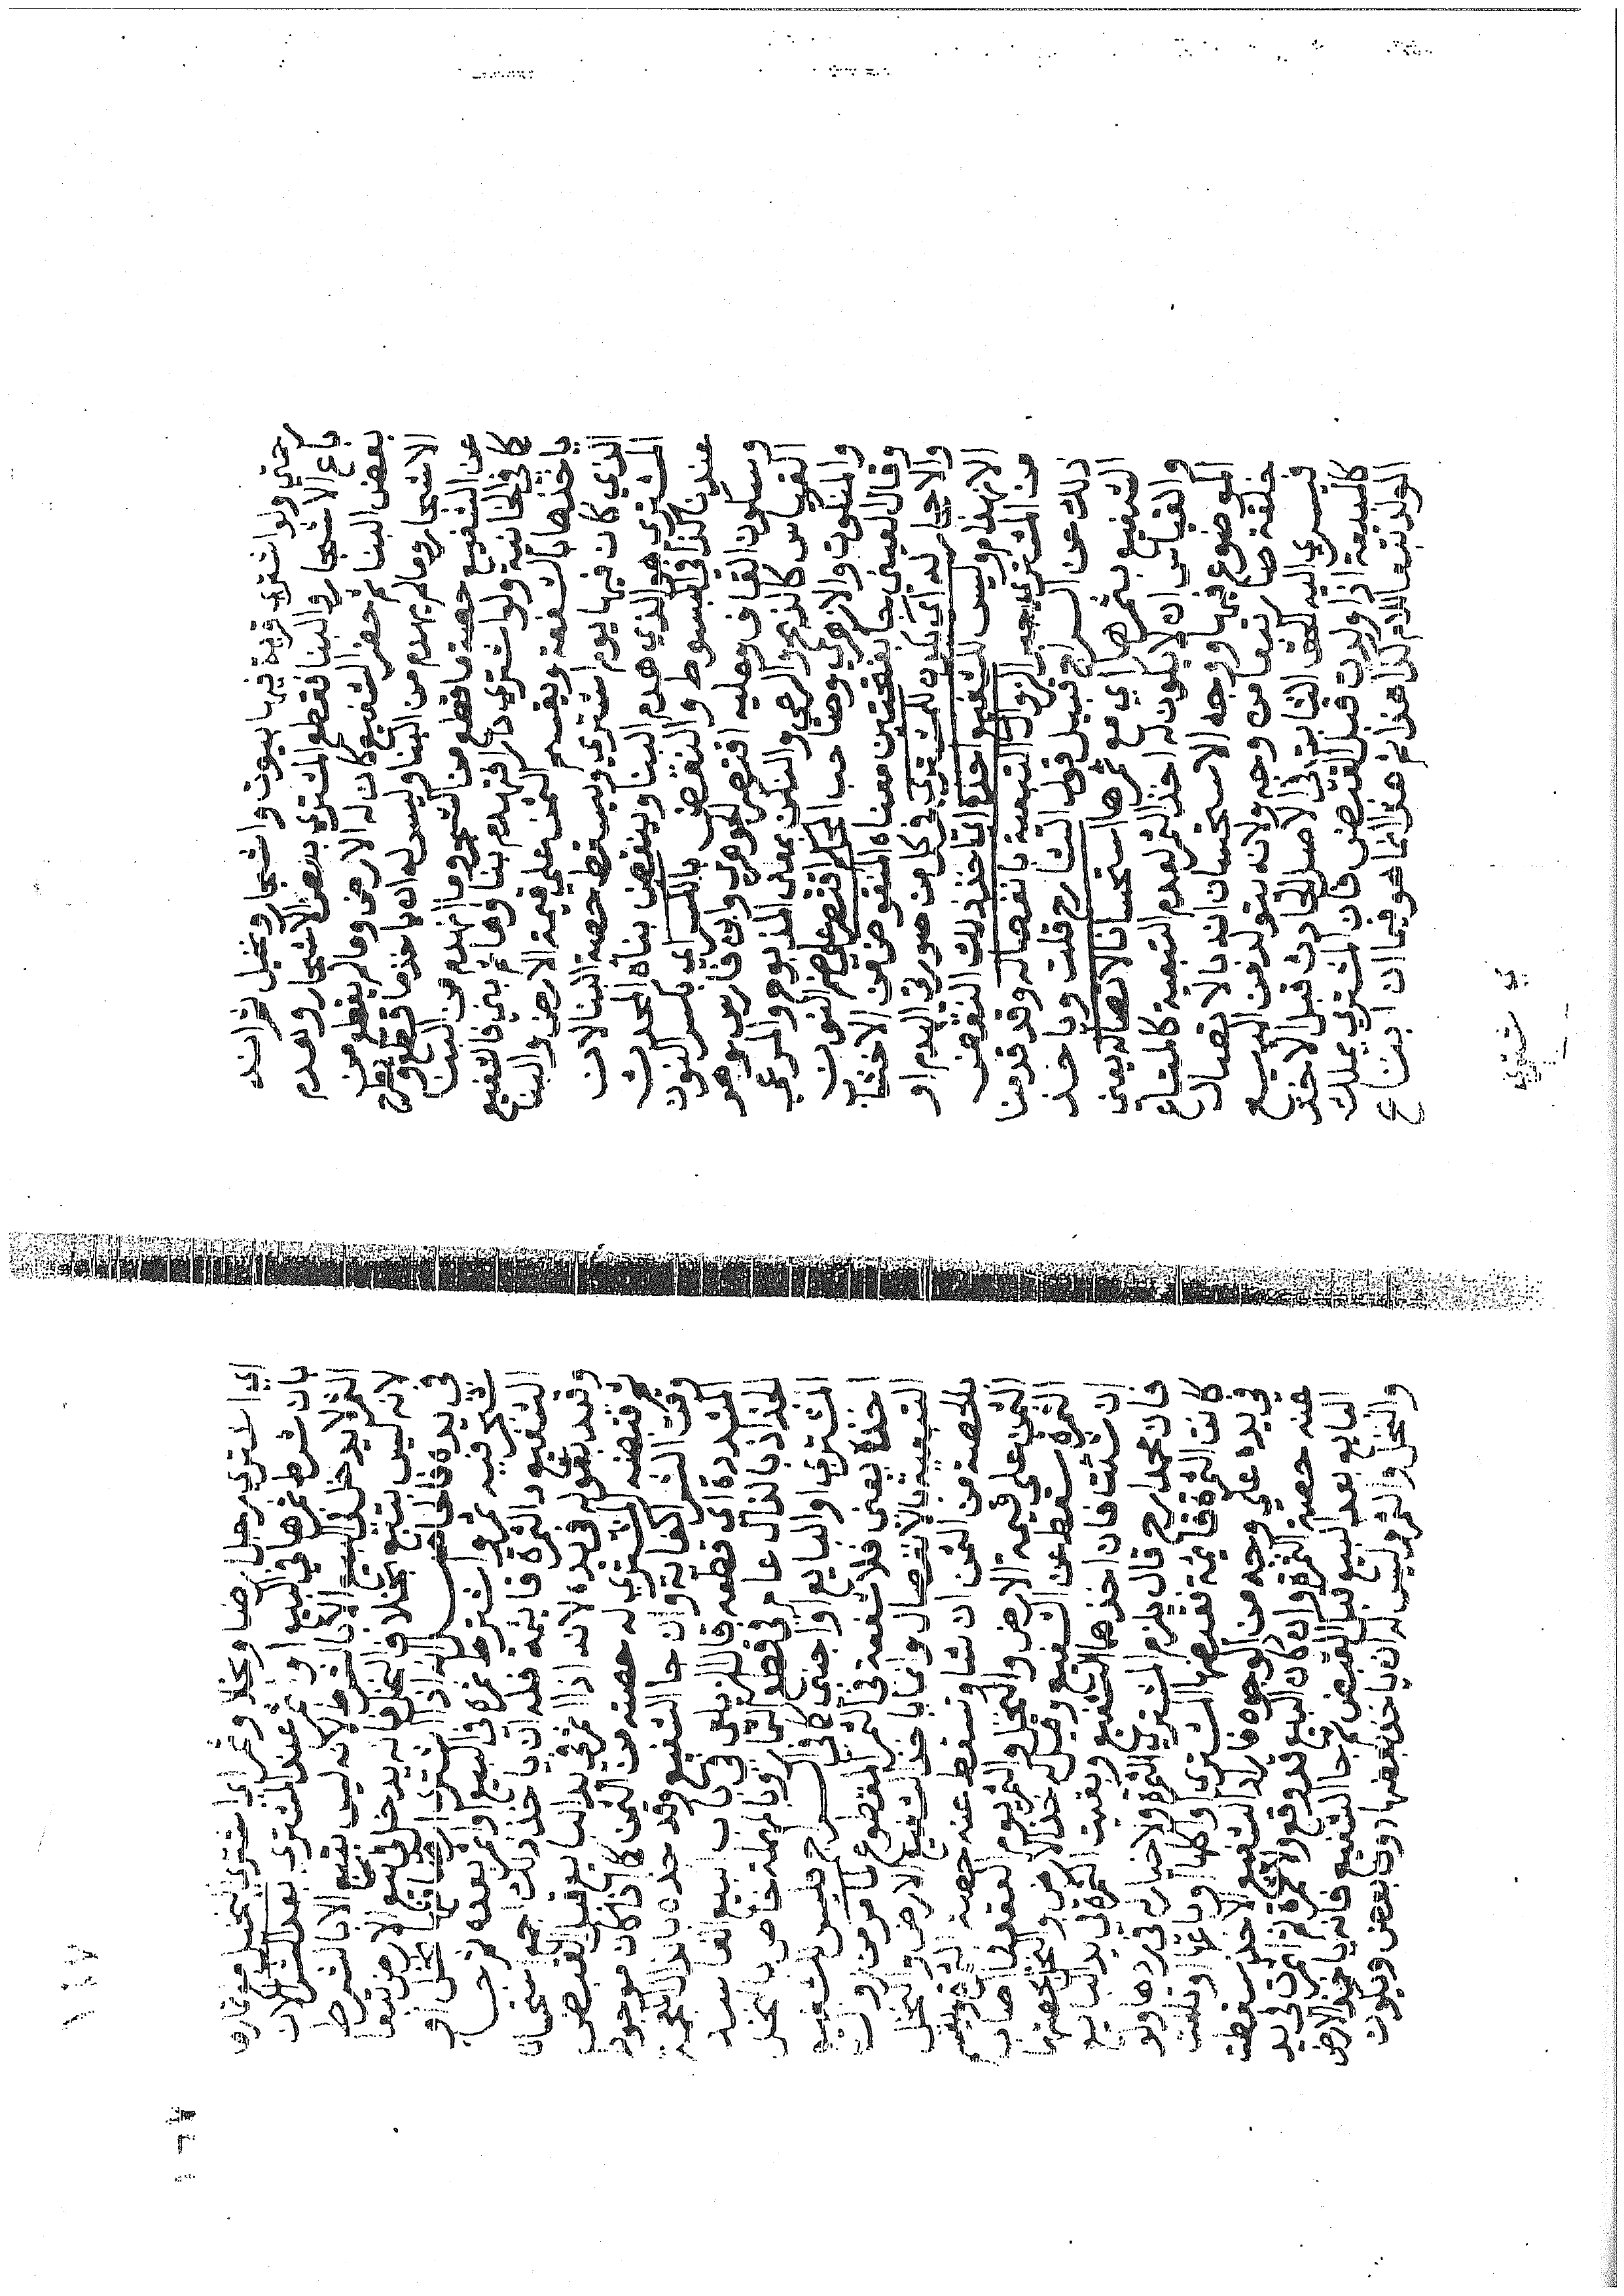 رجتي ولو اشتري قرية فيها بيوت واشجار ونخيل ثم انه
باع الاشجار والبنا فقطع المشتري بعض الاشجار وهدم
بعض البنا ثم حضر الشفيع كان له الارض وما لم يقطع من
الاشجار وما لم يهدم من البنا وليس له ان ياخذ ما قطع ويطرح
عن الشفيع حصة ما قطع من الشجر وما انهدم من البنا
كما في الخانية ولو اشتري دارا فهدم بناوها ثم بني فالشفيع
ياخذها بالشفعة ويقسم الثمن علي قيمة الارض والبنا
الذي كان فيها يوم اشتري ويسقط حصة البنا لان
المشتري هو الذي هدم البنا وينقض بناه المحدث
عندنا كذا في المبسوط والنقض بالكسر اي بكسر النون
وسكون القاف وعليه اقتصر الجوهري وابن فارس وهو
القياس كالذبح والرعي والنكث بمعني المذبوح والمرعي
والمنكوث والازهري وصاحب المحكم اقتصر علي ضم النون
وقال العيني جا بفتحتين معناه المنقوض من الاخشاب
والاحجار له اي يكون للمشتري في كل من صورتي الهدم او
الانهدام وليس للشفيع اخذه اي اخذ ذلك النقض
من المشتري جبرا لزوال التبعية بانفصاله وقد قدمنا
ذلك عن السراج قبيل قول الشارح قلت وياخذ
الشفيع بثمرها اي مع ثمرها استحسانا لاتصاله يعني
والقياس ان لا يكون له اخذ الثمر لعدم التبعية كالمتاع
الموضوع فيها ووجه الاستحسان انه بالاتصال
خلقة صار تبعا من وجه ولانه يتولد من المبيع
فيسري اليه الحق الثابت في الاصل الحادث قبل الاخذ
كالمبيعة اذا ولدت قبل القبض فان المشتري يملك
الولد تبعا للام كذا هذا ثم هذا انما هو فيما ان ابتاع
اي شتري
اي اشتري رجل ارضا ونخلا وثمرا اي اشتري النخيل مع ثماره
بان شرط ثمرها في البيع او اثمر عند المشتري بعد الشرا لان
الثمر لا يدخل في البيع الا بالشرط لانه ليس بتبع الا بالشرط
لانه ليس بتبع بخلاف النخل فانه يدخل في بيع الارض تبعا
في يده فالحاصل انه اذا اشتري ارضا فيها نخل او
شجر فيه ثمر واشترط ثمره في البيع او اثمر بعده ثم حضر
الشفيع والثمرة قايمة فله ان ياخذ ذلك اجمع استحسانا
وقيد بقوله في يده لانه اذا اثمر في يد البايع قبل القبض
ثم قبضه المشتري له حصته من الثمن كما اذا كان موجودا
وقت الشرا كفاية وان جا الشفيع وقد جذه بالذال المعجمة
المشددة اي قطعه قال الزيلعي في باب البيع الفاسد
الجذاذ بالذال عام في قطع الثمار وبالمهملة خاص بالنخل
المشتري او البايع او اجنبي كما في السراج فليس للشفيع
اخذه يعني فلا شفعة في الثمر المقطوع لما مر من زوال
التبعية بالانفصال وانما ياخذ الشفيع الارض والنخل
بالحصة من الثمن ان شا وتسقط عنه حصة الثمر فيقسم
الثمن علي قيمة الارض والنخل والثمر يوم العقد فما اصاب
الثمرة سقط عن الشفيع وقيل له خذ الارض والنخل بحصتها
ان شئت فان اخذها الشفيع وبقيت الثمرة في يد البايع
فان محمدا رح قال يلزم المشتري الثمرة ولا خيار له في ردها ولو
كانت الثمرة قايمة فقبضها المشتري واكلها او باعها او تلفت
في يده علي وجه من الوجوه فاراد الشفيع الاخذ سقطت
عنه حصة الثمرة وان كان البيع قد وقع ولا ثمرة ثم اثمرت في يد
البايع بعد البيع قبل القبض ثم جا الشفيع فانه ياخذ الارض
والنخل والثمر وليس له ان ياخذ بعضها دون بعض ويكون